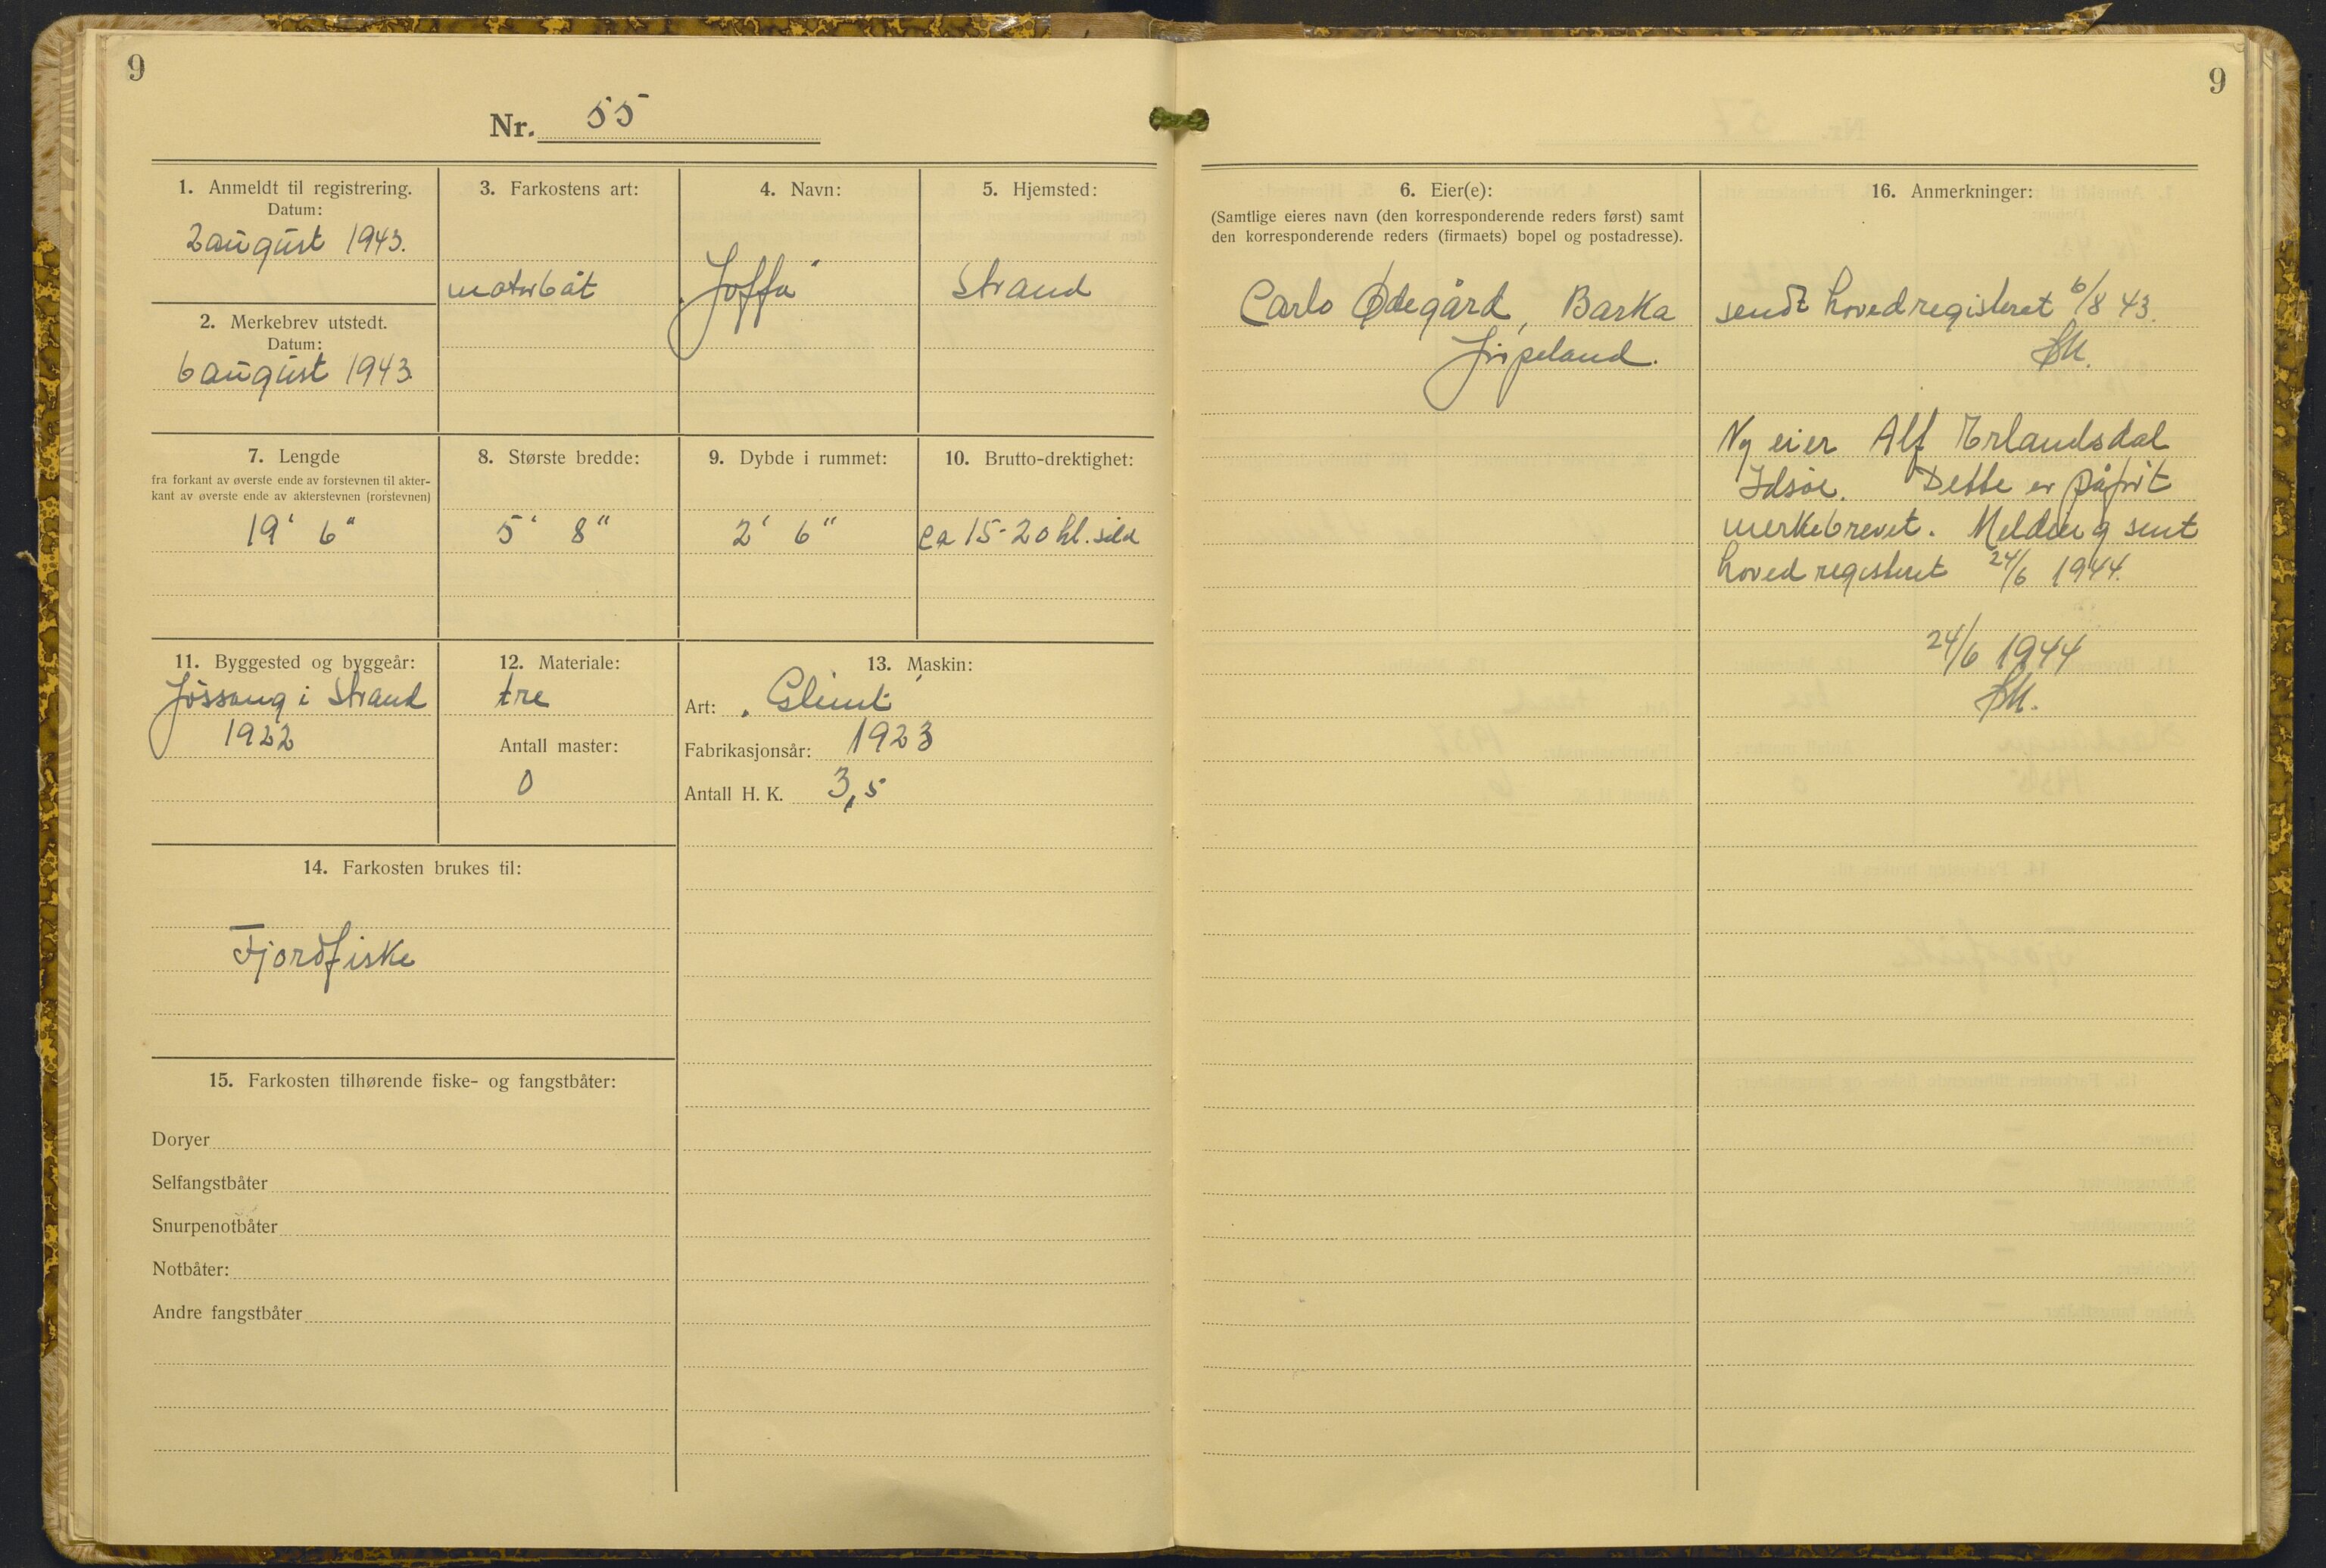 9
Nr. 55
1. Anmeldt til registrering.
Datum:
2 august 1943.
2. Merkebrev utstedt.
Datum:
6 august 1943.
3. Farkostens art:
motorbåt
4. Navn:
"Joffa"
5. Hjemsted:
Strand
7. Lengde
fra forkant av øverste ende av forstevnen til akter-
kant av øverste ende av akterstevnen (rorstevnen)
19' 6"
8. Største bredde:
5' 8"
9. Dybde i rummet:
2' 6"
10. Brutto-drektighet:
ca 15-20 hl. sild
11. Byggested og byggeår:
Jøssang i Strand
1922
12. Materiale:
tre
Antall master:
0
13. Maskin:
Art: "Glimt"
Fabrikasjonsår: 1923
Antall H. K. 3,5
14. Farkosten brukes til:
Fjordfiske
15. Farkosten tilhørende fiske- og fangstbåter:
Doryer
Selfangstbåter
Snurpenotbåter
Notbåter:
Andre fangstbåter
9
6. Eier(e):
(Samtlige eieres navn (den korresponderende reders først) samt
den korresponderende reders (firmaets) bopel og postadresse).
Carlo Ødegård, Barka
Jørpeland.
16. Anmerkninger:
sendt hovedregisteret 6/8 43.
Ny eier Alf Erlandsdal
Idsøe. Dette er påført
merkebrevet. Melding sent
hovedregisteret 24/6 1944.
24/6 1944